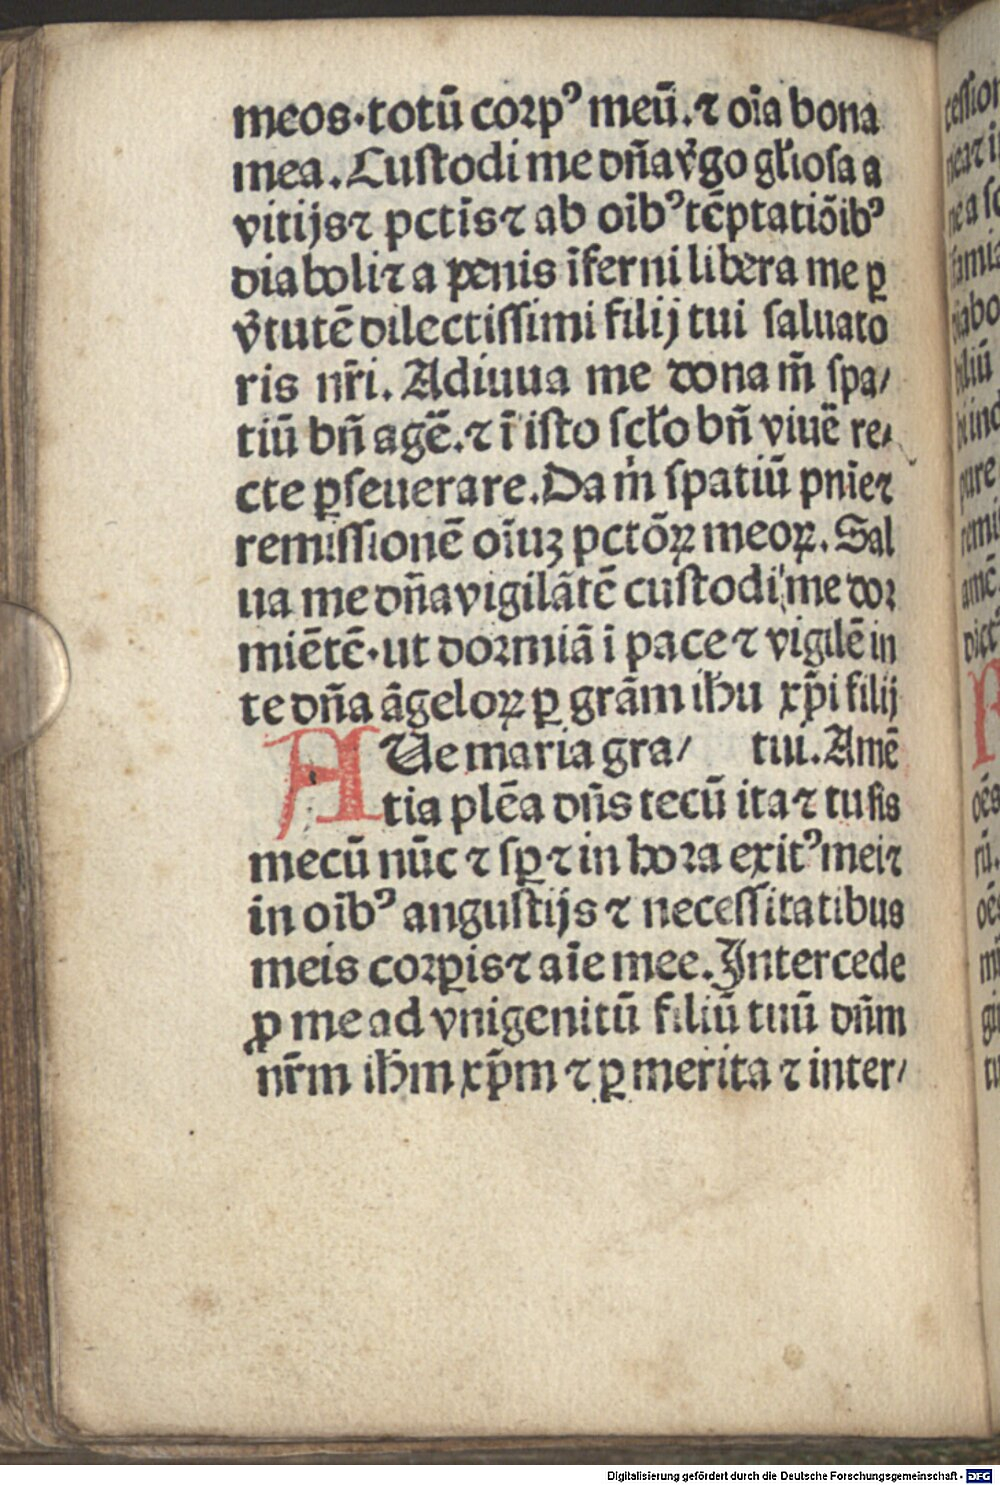 meos·totū corpꝰ meū.⁊ oīa bona
mea.Custodi me dn̄a v̓go gl̄iosa a
vitijs⁊ pctīs⁊ ab oībꝰ tēptatiōibꝰ
diaboli⁊ a penis īferni libera me ꝑ
v̓tutē dilectissimi filij tui saluato
ris nr̄i. Adiuua me dona m̄ spa/
tiū bn̄ agē̄.⁊ ī isto scło bn̄ viuē̄ re/
cte ꝑseuerare.Da m̄ spatiū pnīe⁊
remissionē oīuꝫ pctōꝝ meoꝝ. Sal
ua me dn̄a vigilātē custodi me dor
miētē·ut dormiā ī pace ⁊ vigilē in
te dn̄a āgeloꝝ ꝑ grām ih̄u xp̄i filij
AUe maria gra/ tui.Amē
tia plēa dn̄s tecū ita ⁊ tu sis
mecū nūc ⁊ sꝑ ⁊ in hora exitꝰ mei⁊
in oībꝰ angustijs ⁊ necessitatibus
meis corꝑis⁊ aīe mee.Intercede
ꝓ me ad vnigenitū filiū tuū dn̄m
nr̄m ih̄m xp̄m ⁊ ꝑ merita ⁊ inter/
Digitalisierung gefördert durch die Deutsche Forschungsgemeinschaft - DFG